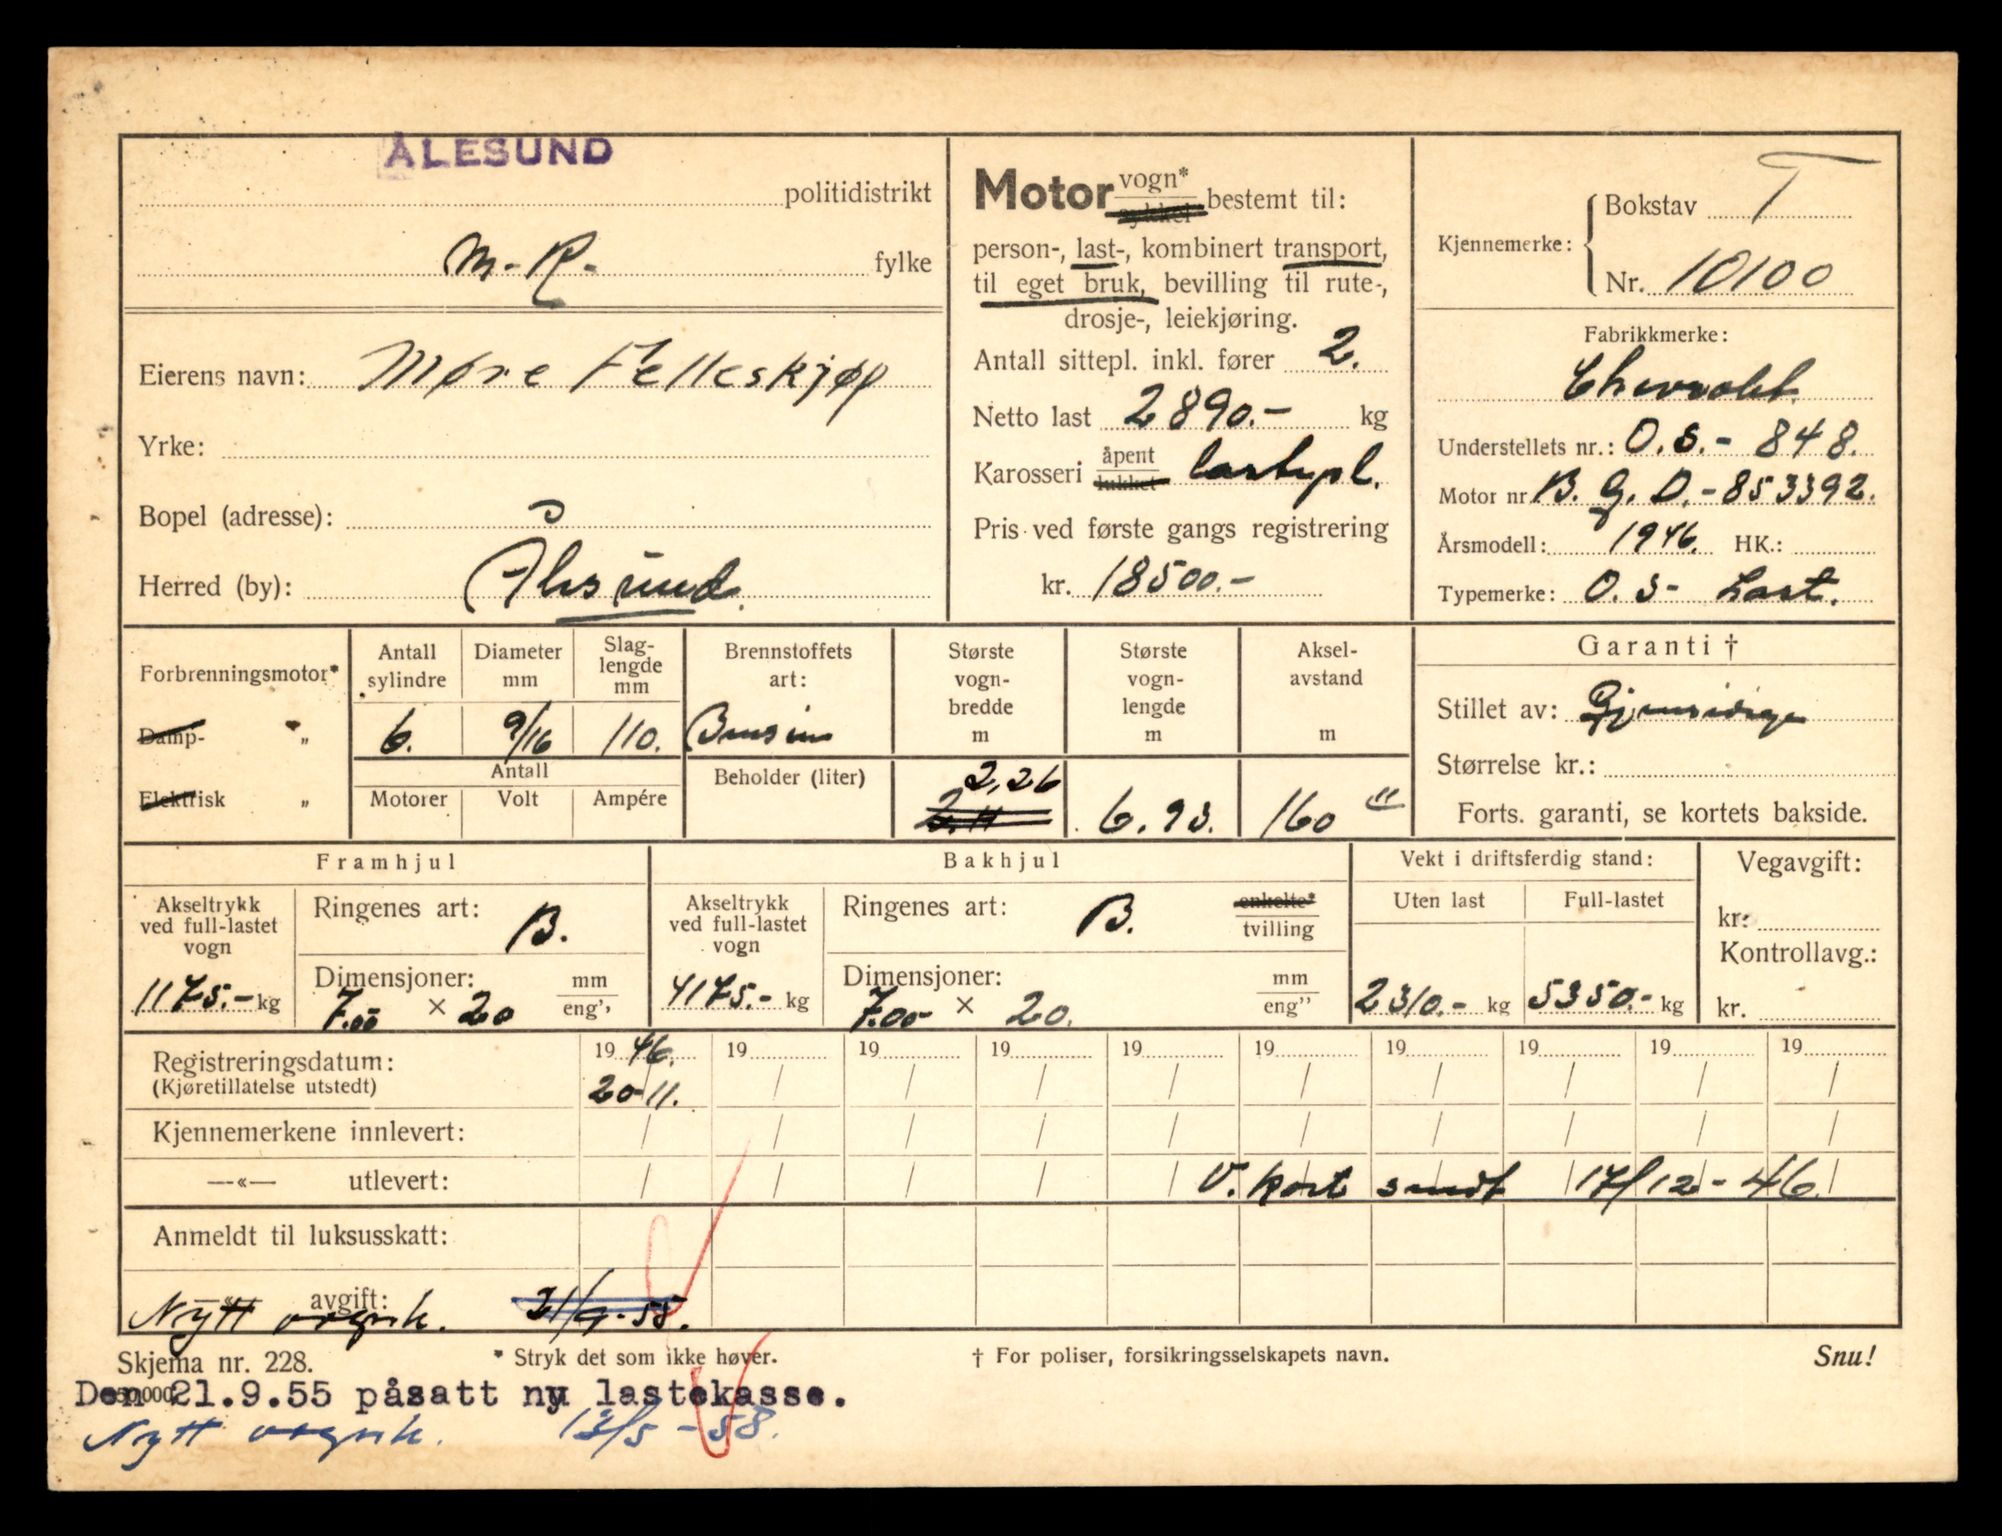 ÅLESUND
politidistrikt
M.-R.- fylke
Eierens navn: Møre Felleskjøp
Yrke:
Bopel (adresse):
Herred (by): Ålesund.
Motor vogn*
sykkel bestemt til:
person-, last-, kombinert transport,
til eget bruk, bevilling til rute-,
drosje-, leiekjøring.
Antall sittepl. inkl. fører 2.
Netto last 2890.- kg
Karosseri åpent
lukket lastepl.
Pris ved første gangs registrering
kr. 18500.-
Kjennemerke: Bokstav T
Nr. 10100
Fabrikkmerke:
Chevrolet.
Understellets nr.: O.S.- 848.
Motor nr B.G.D.-853392.
Årsmodell: 1946. HK.:
Typemerke: O.S- Last.
Forbrenningsmotor*
Damp- "
Elektrisk "
Antall sylindre
6.
Diameter mm
9/16
Slaglengde mm
110.
Antall
Motorer Volt Ampére
Brennstoffets art:
Bensin
Beholder (liter)
Største vogn-bredde m
2,26
2.11
Største vogn-lengde m
6.93.
Aksel-avstand m
160"
Garanti †
Stillet av: Gjensidige
Størrelse kr.:
Forts. garanti, se kortets bakside.
Framhjul
Akseltrykk ved full-lastet vogn
1175.- kg
Ringenes art: B.
Dimensjoner: mm
7.00 × 20 eng''
Bakhjul
Akseltrykk ved full-lastet vogn
4175.- kg
Ringenes art: B. enkelte*
tvilling
Dimensjoner: mm
7.00- × 20. eng"
Vekt i driftsferdig stand:
Uten last Full-lastet
2310.- kg 5350.- kg
Vegavgift:
kr:
Kontrollavg.:
kr.
Registreringsdatum: 19 46. 19 19 19 19 19 19 19 19 19
(Kjøretillatelse utstedt) 20/11. / / / / / / / / /
Kjennemerkene innlevert: / / / / / / / / / /
—«— utlevert: / / / / / V. kort sendt 17/12-46.
Anmeldt til luksusskatt:
—«— avgift:
Nytt vognk. 21/9-55.
Skjema nr. 228. * Stryk det som ikke høver. † For poliser, forsikringsselskapets navn. Snu!
Den 21.9.55 påsatt ny lastekasse.
Nytt vognk. 13/5-58.